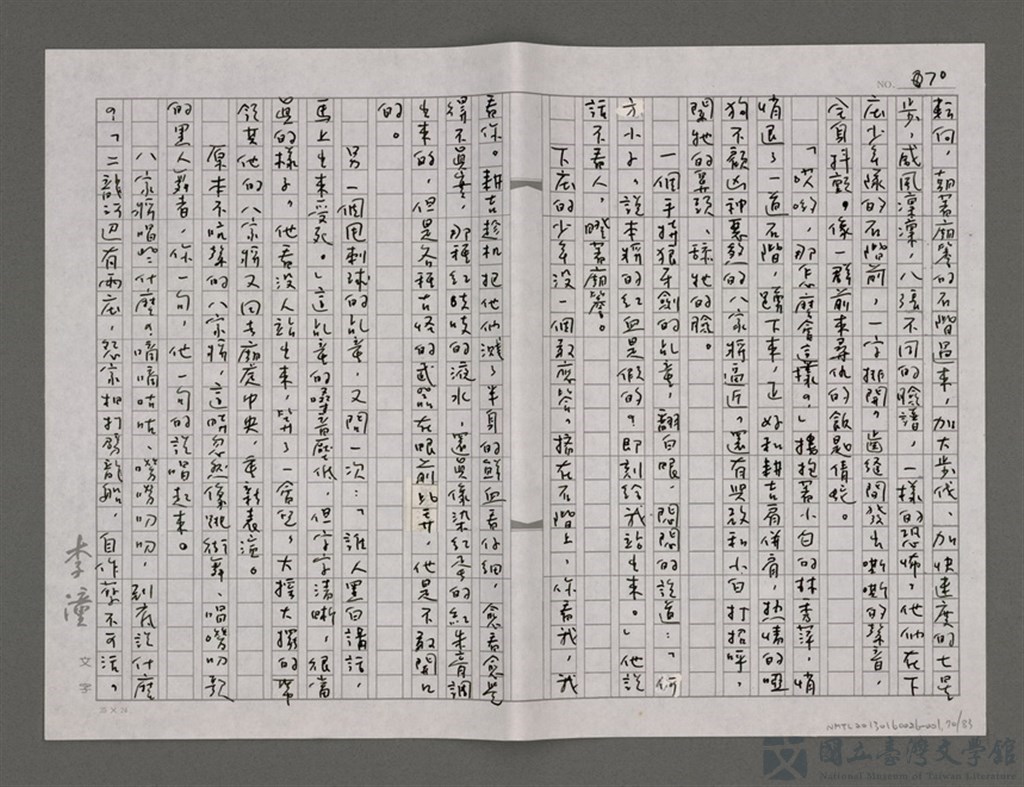 NO. 70
轉向，朝著廟簷的石階過來，加大步伐、加快速度的七星
步，威風凜凜，八張不同的臉譜，一樣的恐怖，他們在下
庄少年隊的石階前，一字排開。齒縫間發出嘶嘶的聲音，
全身抖顫。像一群前來尋仇的飯匙倩蛇。
「哎喲，那怎麼會這樣。」摟抱著小白的林秀萍，悄
悄退了一道石階，蹲下來，正好和耕吉肩併肩，熱情的啞
狗不顧凶神惡煞的八家將逼近，還有興致和小白打招呼，
聞牠的鼻頭、舔牠的臉。
一個手持狼牙劍的乩童，翻白眼，悶悶的說道：「何
方小子，說本將的紅血是假的？即刻給我站出來。」他說
話不看人，瞪著廟簷。
下庄的少年沒一個敢應答。擠在石階上，你看我，我
看你。耕吉趁机把他們濺了半身的鮮血看仔細，愈看愈覺
得不真實，那種紅吱吱的液水，還真像染紅蛋的紅朱膏調
出來的，但是各種古怪的武器在眼前比弄，他是不敢開口
的。
另一個甩刺球的乩童，又問一次：「誰人黑白講話，
馬上出來受死。」這乩童的嗓音壓低，但字字清晰，很當
真的樣子。他看沒人站出來，等了一會兒，大搖大擺的帶
領其他的八家將又回去廟庭中央，重新表演。
原本不吭聲的八家將，這時忽然像跳街舞、唱嘮叨歌
的黑人舞者，你一句，他一句的說唱起來。
八家將唱些什麼？嘀嘀咕咕、嘮嘮叨叨，到底說什麼
？「二龍河邊有兩庄，怨家相打為龍船，自作孽不可活，
李潼
文字
25 × 24
NMTL20130160026-001, 70/83
國立臺灣文學館
National Museum of Taiwan Literature